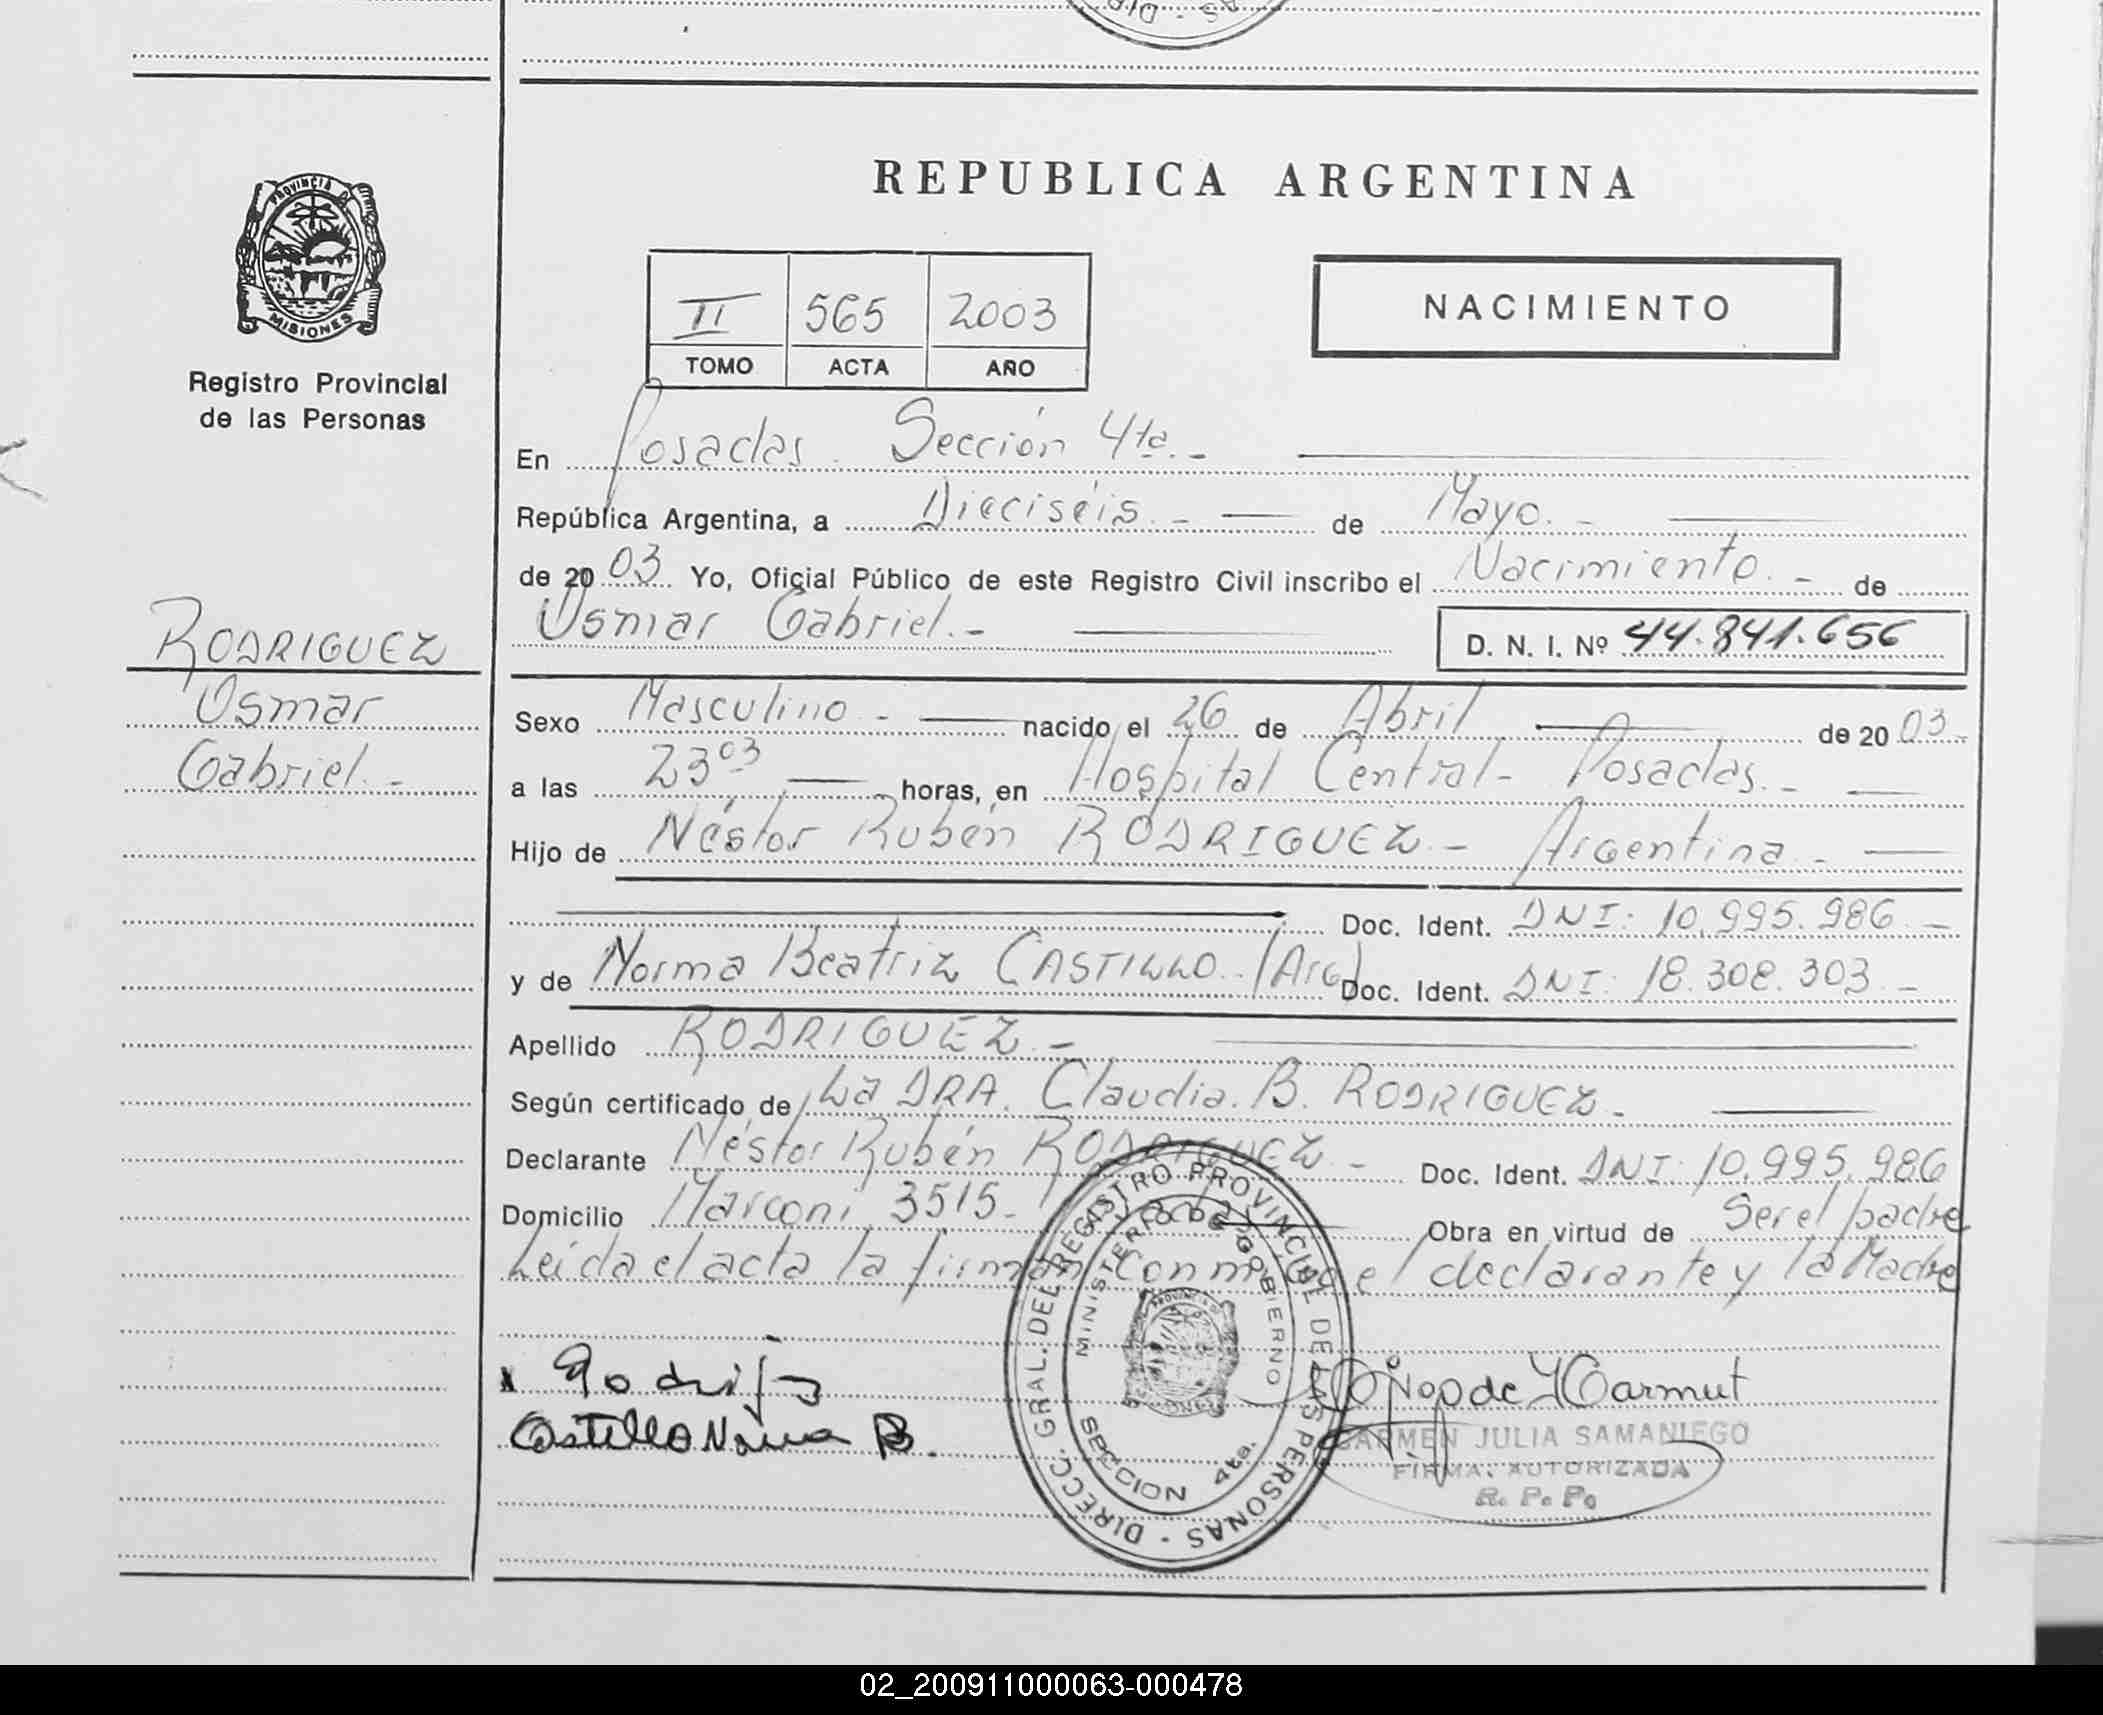 REPUBLICA ARGENTINA
PROVINCIA DE
MISIONES
Registro Provincial
de las Personas
II 565 2003
TOMO ACTA AÑO
NACIMIENTO
En Posadas. Sección 4ta.-
República Argentina, a Dieciséis.- de Mayo.-
de 2003 Yo, Oficial Público de este Registro Civil inscribo el Nacimiento.- de
Osmar Gabriel.- D. N. I. Nº 44.841.656
RODRIGUEZ
Osmar
Gabriel.-
Sexo Masculino.- nacido el 26 de Abril de 2003.-
a las 23 03 horas, en Hospital Central- Posadas.-
Hijo de Néstor Rubén RODRIGUEZ.- Argentina.-
Doc. Ident. DNI: 10.995.986.-
y de Norma Beatriz CASTILLO.- (Arg) Doc. Ident. DNI: 18.308.303.-
Apellido RODRIGUEZ.-
Según certificado de La DRA. Claudia. B. RODRIGUEZ.-
Declarante Néstor Rubén RODRIGUEZ.- Doc. Ident. DNI: 10.995.986
Domicilio Marconi 3515- Obra en virtud de Ser el padre
Leída el acta la firman Conmigo el declarante y la Madre
DIRECC. GRAL. DEL REGISTRO PROVINCIAL DE LAS PERSONAS -
MINISTERIO DE GOBIERNO
SECCION 4ta.
Castillo Norma B.
CARMEN JULIA SAMANIEGO
FIRMA AUTORIZADA
R. P. P.
02_200911000063-000478